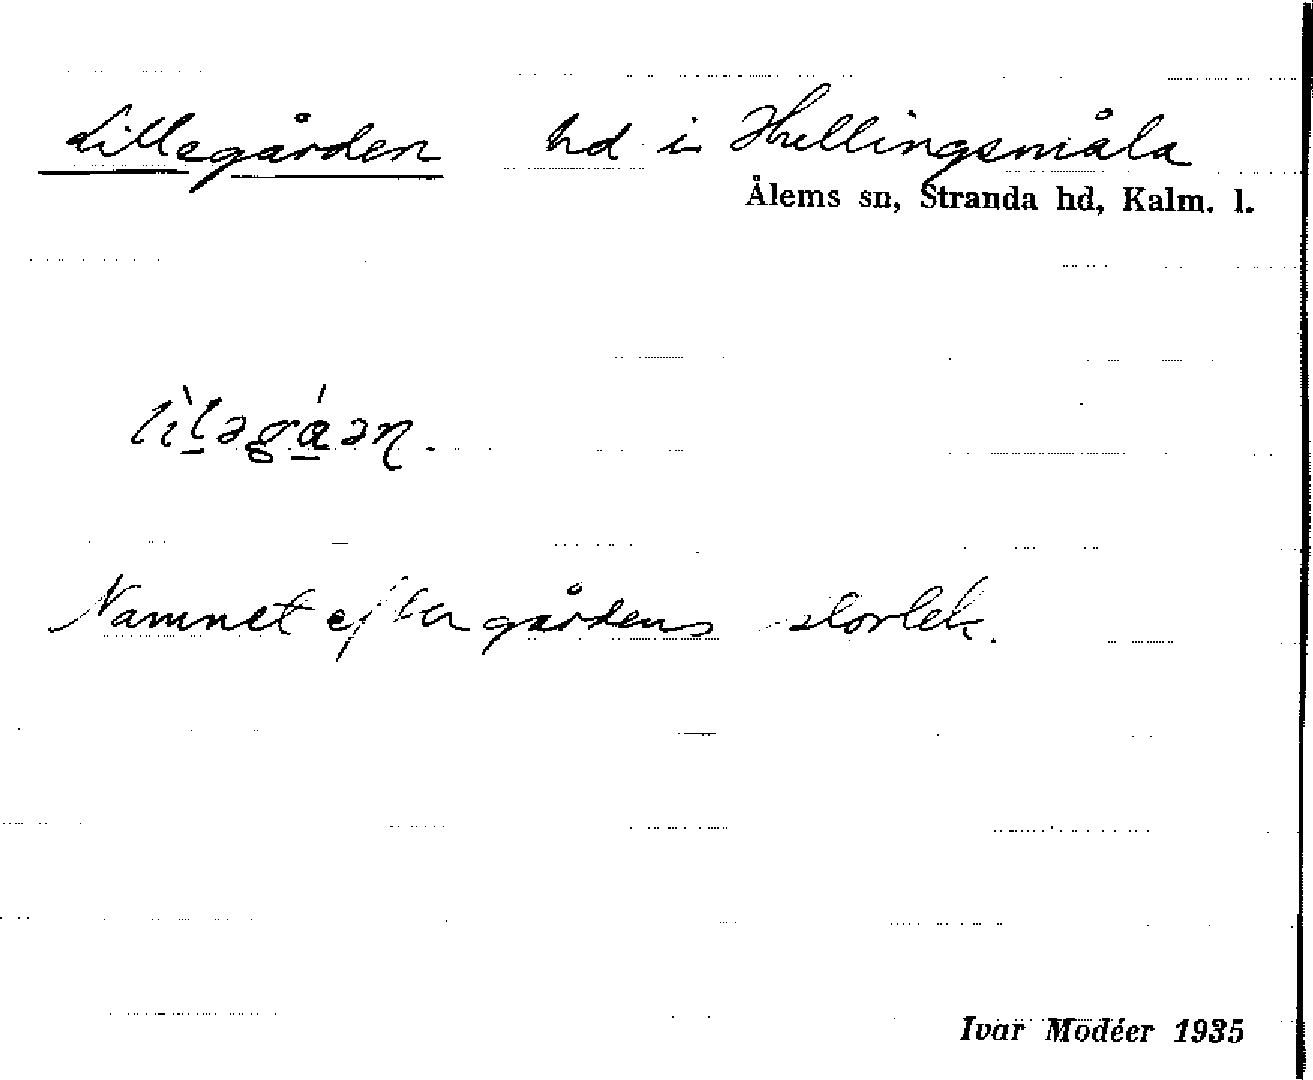 Lillegården hd i Hullingsmåla
Ålems sn, Stranda hd, Kalm. l.
Namnet efter gårdens storlek.
Ivar Modéer 1935